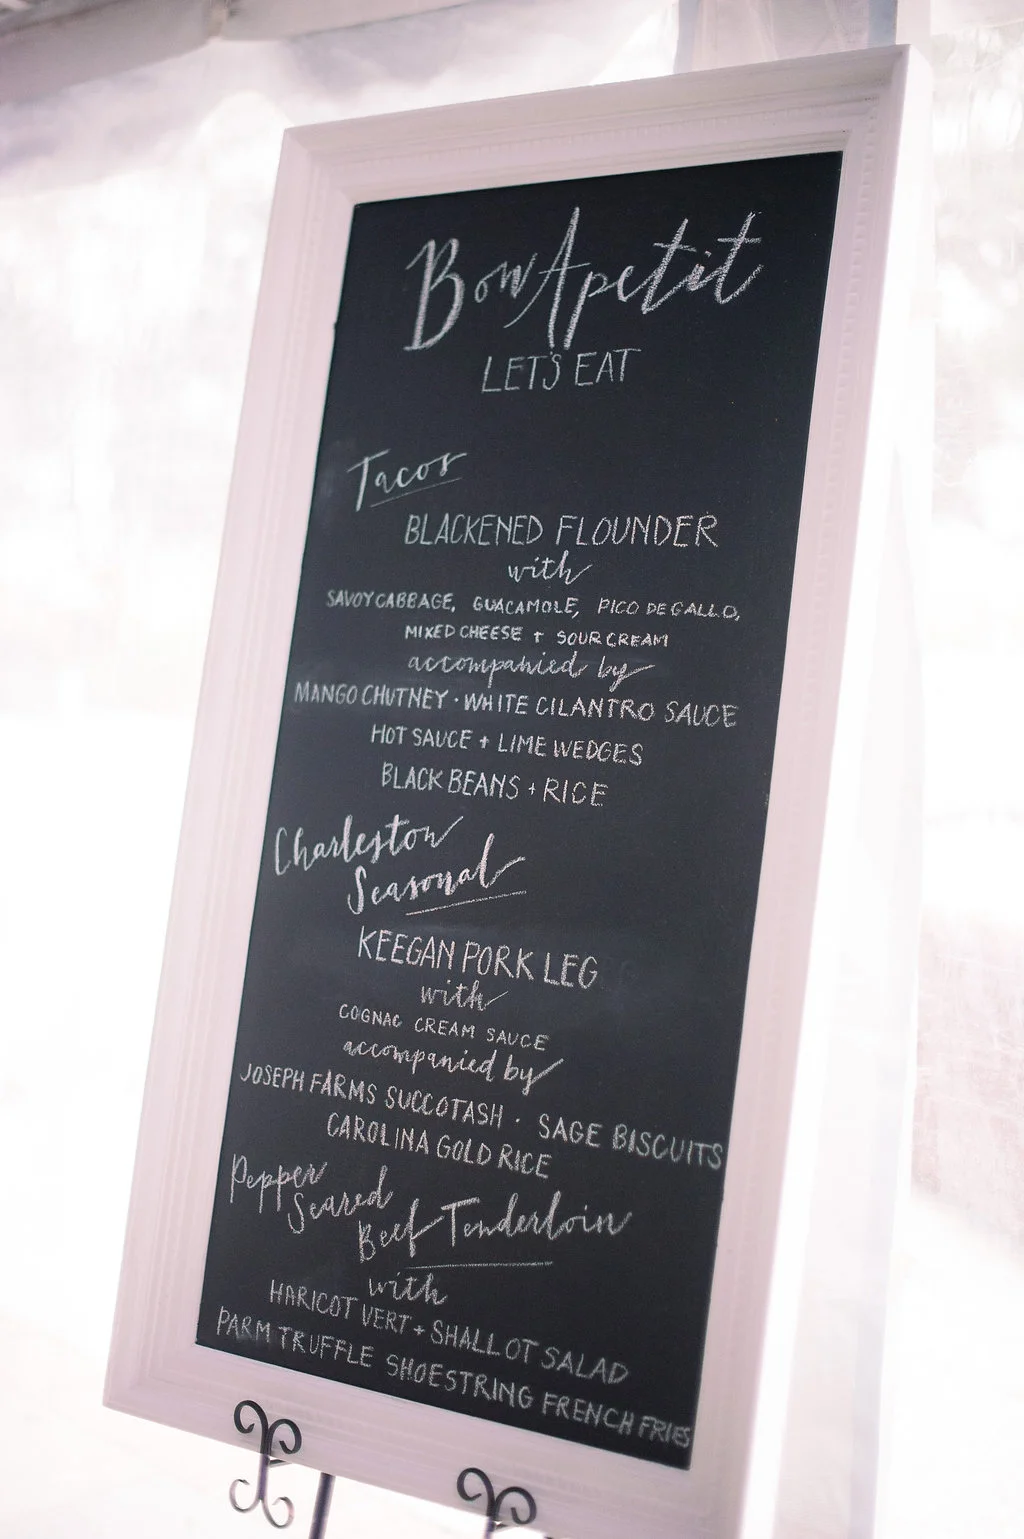 Bon Apetit
LET'S EAT
Tacos
BLACKENED FLOUNDER
with
SAVOY CABBAGE, GUACAMOLE, PICO DE GALLO,
MIXED CHEESE + SOUR CREAM
accompanied by
MANGO CHUTNEY · WHITE CILANTRO SAUCE
HOT SAUCE + LIME WEDGES
BLACK BEANS + RICE
Charleston
Seasonal
KEEGAN PORK LEG
with
COGNAC CREAM SAUCE
accompanied by
JOSEPH FARMS SUCCOTASH · SAGE BISCUITS
CAROLINA GOLD RICE
Pepper
Seared
Beef Tenderloin
with
HARICOT VERT + SHALLOT SALAD
PARM TRUFFLE SHOESTRING FRENCH FRIES